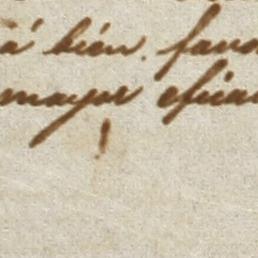 á bién favo
mayor efica